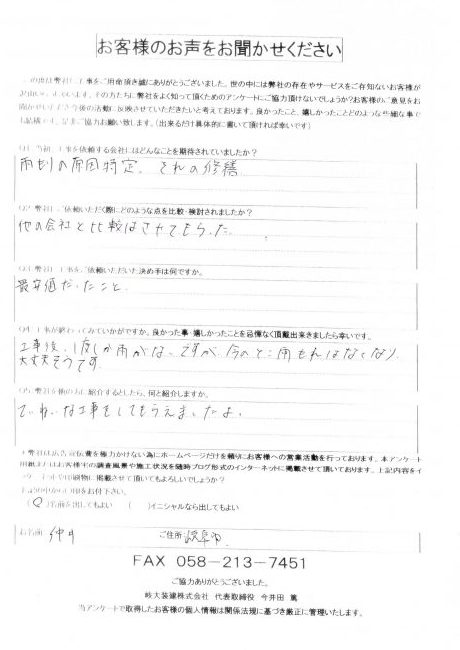 お客様のお声をお聞かせください
工事をご用命頂き誠にありがとうございました。世の中には弊社の存在やサービスをご存知ないお客様が
その方たちに弊社をよく知って頂くためのアンケートにご協力頂けないでしょうか?お客様のご意見をお
聞かせいただき今後の活動に反映させていただきたいと考えております。良かったこと、嬉しかったことどのような些細な事で
ご協力お願い致します。(出来るだけ具体的に書いて頂ければ幸いです)
工事を依頼する会社にはどんなことを期待されていましたか?
雨もりの原因特定、それの修繕
ご依頼いただく際にどのような点を比較・検討されましたか?
他の会社と比較はさせてもらった
工事をご依頼いただいた決め手は何ですか。
最安値だったこと
工事が終わってみていかがですか。良かった事・嬉しかったことを忌憚なく頂戴出来ましたら幸いです。
工事後、1度しか雨がないですが、今のところ雨もれはなくなり
大丈夫そうです。
紹介するとしたら、何と紹介しますか。
ていねいな工事をしてもらえましたよ。
弊社は広告宣伝費を極力かけない為にホームページだけを頼りにお客様への営業活動を行っております。本アンケート
用紙またはお客様宅の調査風景や施工状況を随時ブログ形式のインターネットに掲載させて頂いております。上記内容をイ
印刷物に掲載させて頂いてもよろしいでしょうか?
印をお付下さい。
(○)名前を出してもよい ( )イニシャルなら出してもよい
お名前 ご住所 岐阜市
FAX 058-213-7451
ご協力ありがとうございました。
岐大装建株式会社 代表取締役 今井田 篤
当アンケートで取得したお客様の個人情報は関係法規に基づき厳正に管理いたします。